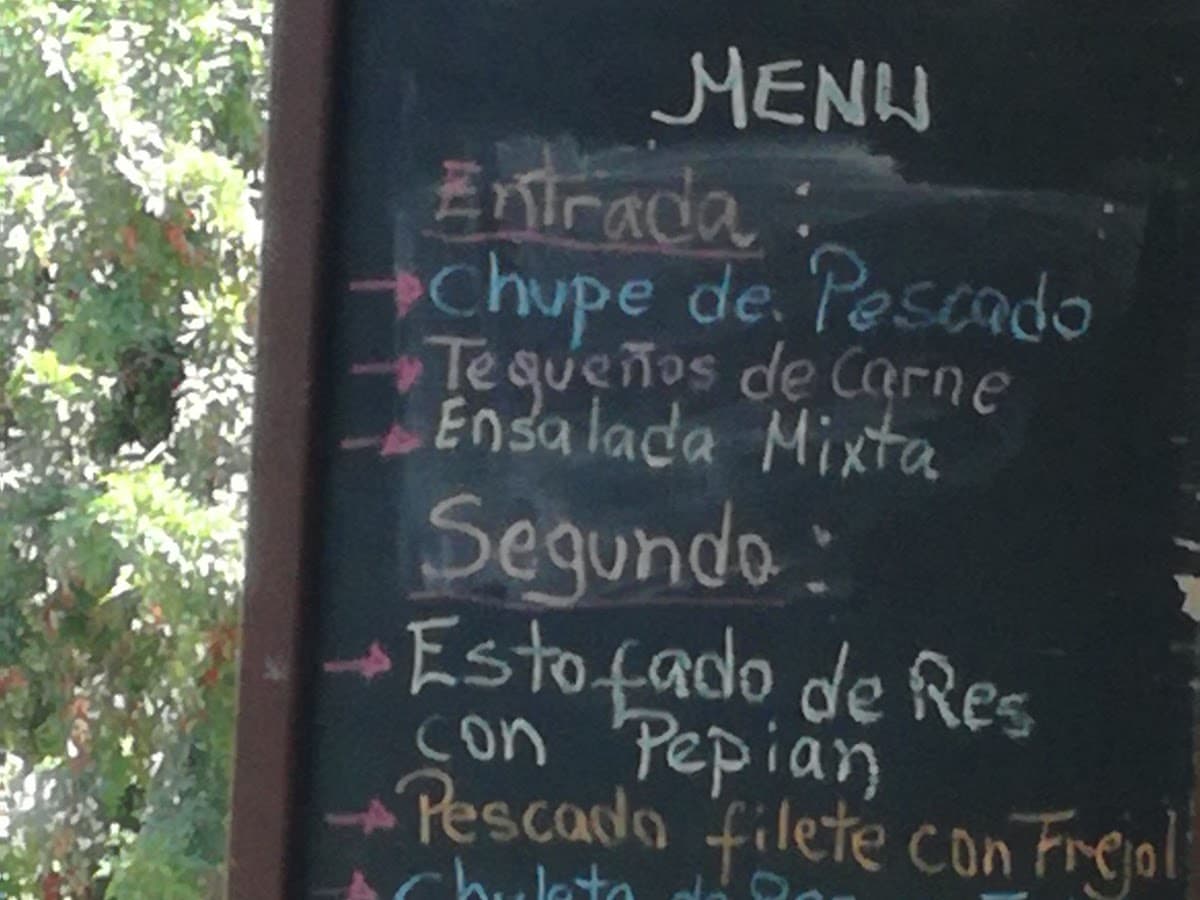 MENU
Entrada :
Chupe de Pescado
Tequeños de Carne
Ensalada Mixta
Segundo :
Estofado de Res
con Pepian
Pescado filete con Frejol
Chuleta de